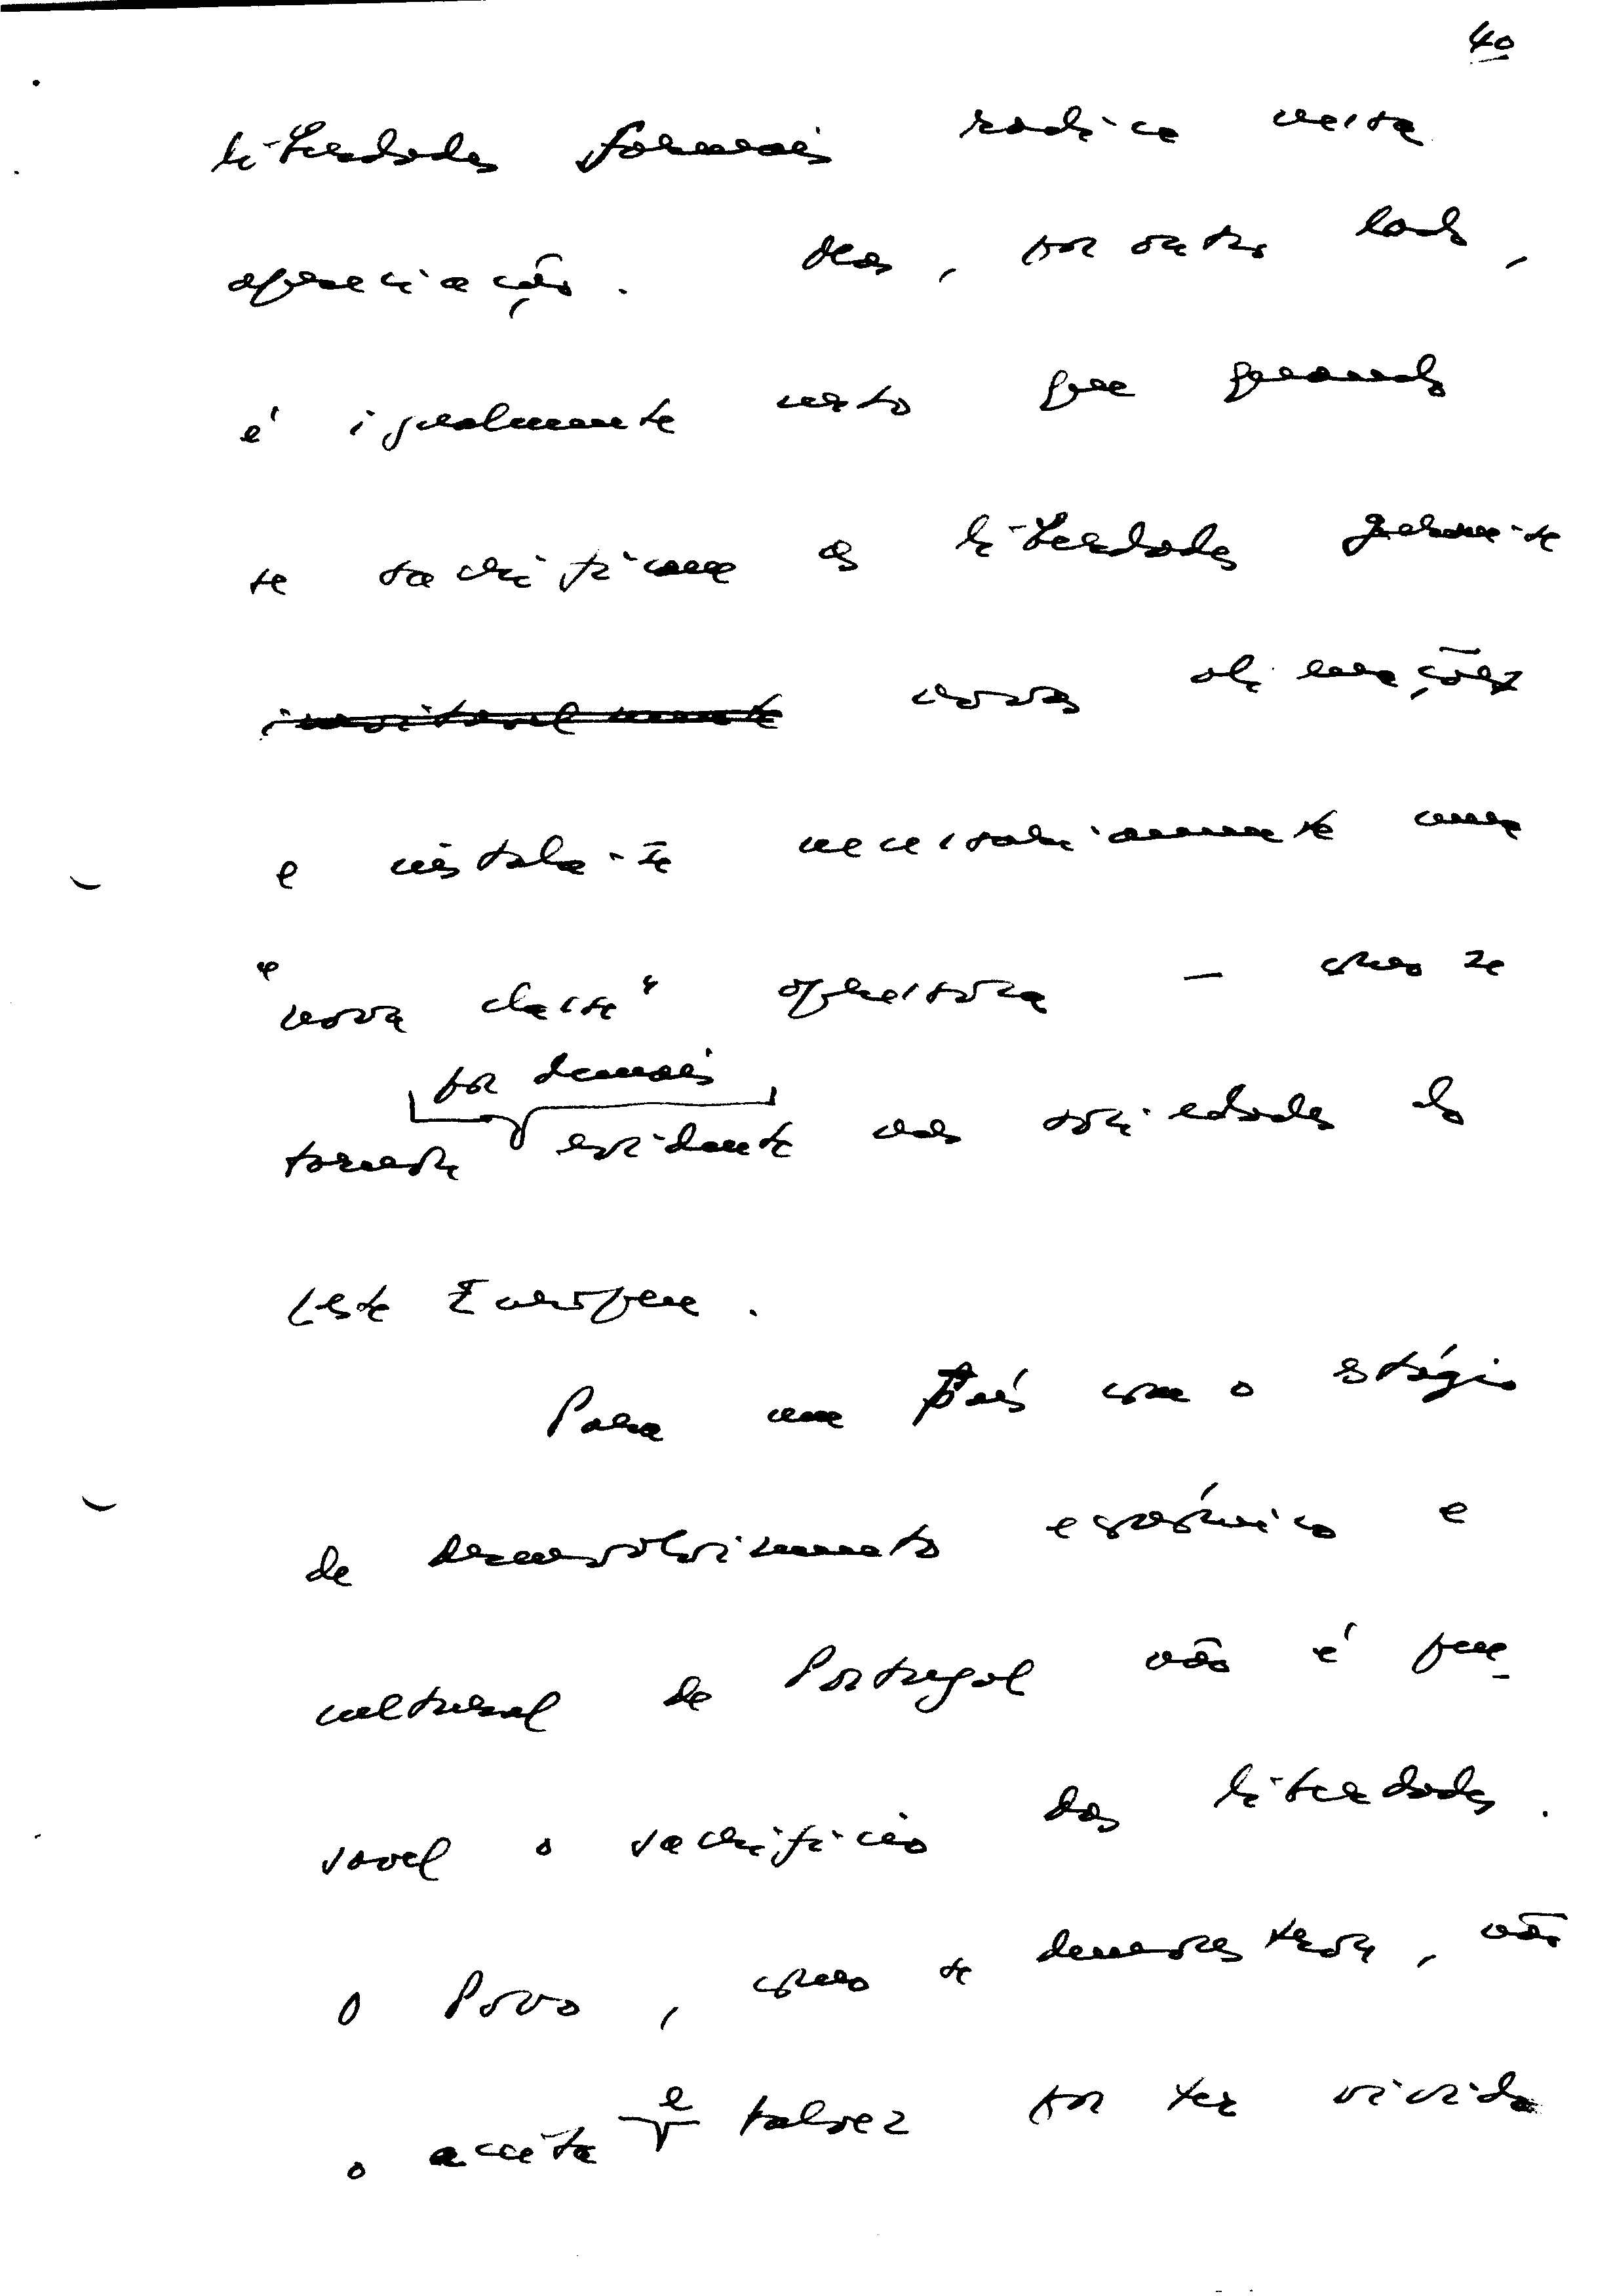 40
liberdades formais radica nessa
apreciação. Mas, por outro lado,
é igualmente certo que quando
se sacrificam as liberdades
inevitavelmente novas alienações
e instala-se necessariamente uma
"nova classe" opressora – como se
por demais
tornou evidente nas sociedades do
Leste Europeu.
Para um País com o estágio
de desenvolvimento económico e
cultural de Portugal não é pen-
sável o sacrifício das liberdades.
O Povo, como se demonstrou, não
o aceita e talvez por ter vivido